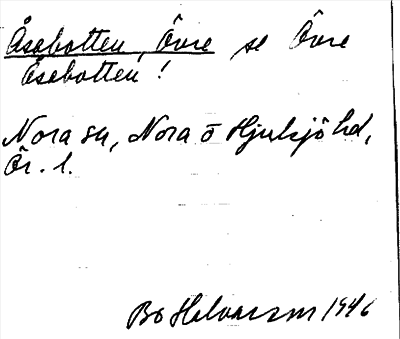 Åsebotten, Övre se Övre
Åsebotten!
Nora sn, Nora o Hjulsjö hd,
Ör. l.
Bo Halvarson 1946